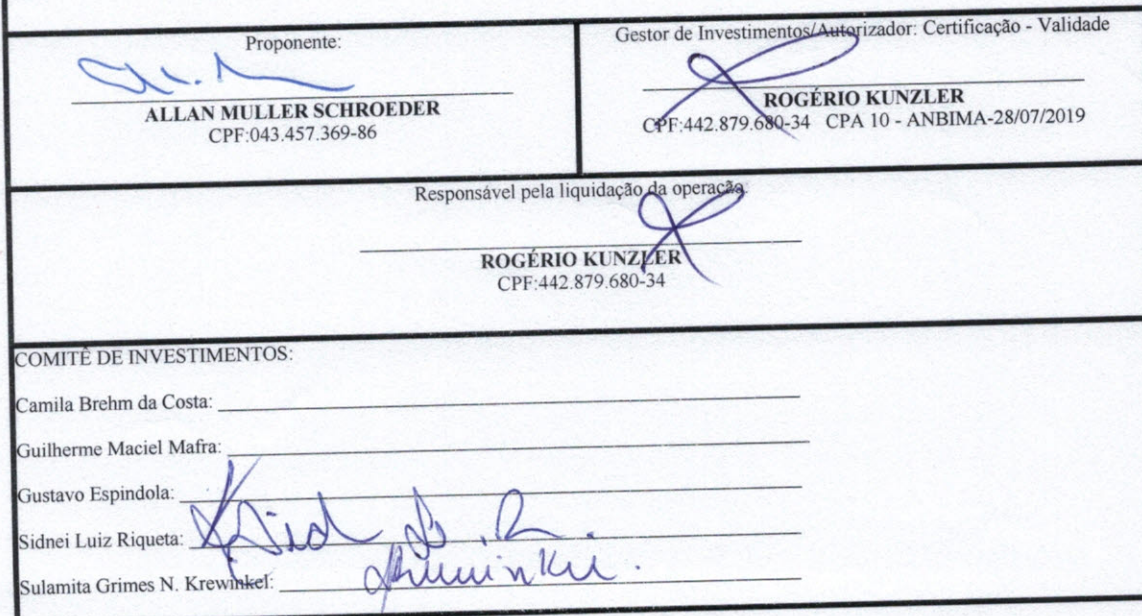 Proponente:
ALLAN MULLER SCHROEDER
CPF:043.457.369-86
Gestor de Investimentos/Autorizador: Certificação - Validade
ROGÉRIO KUNZLER
CPF:442.879.680-34 CPA 10 - ANBIMA-28/07/2019
Responsável pela liquidação da operação:
ROGÉRIO KUNZLER
CPF:442.879.680-34
COMITÊ DE INVESTIMENTOS:
Camila Brehm da Costa:
Guilherme Maciel Mafra:
Gustavo Espindola:
Sidnei Luiz Riqueta:
Sulamita Grimes N. Krewinkel: